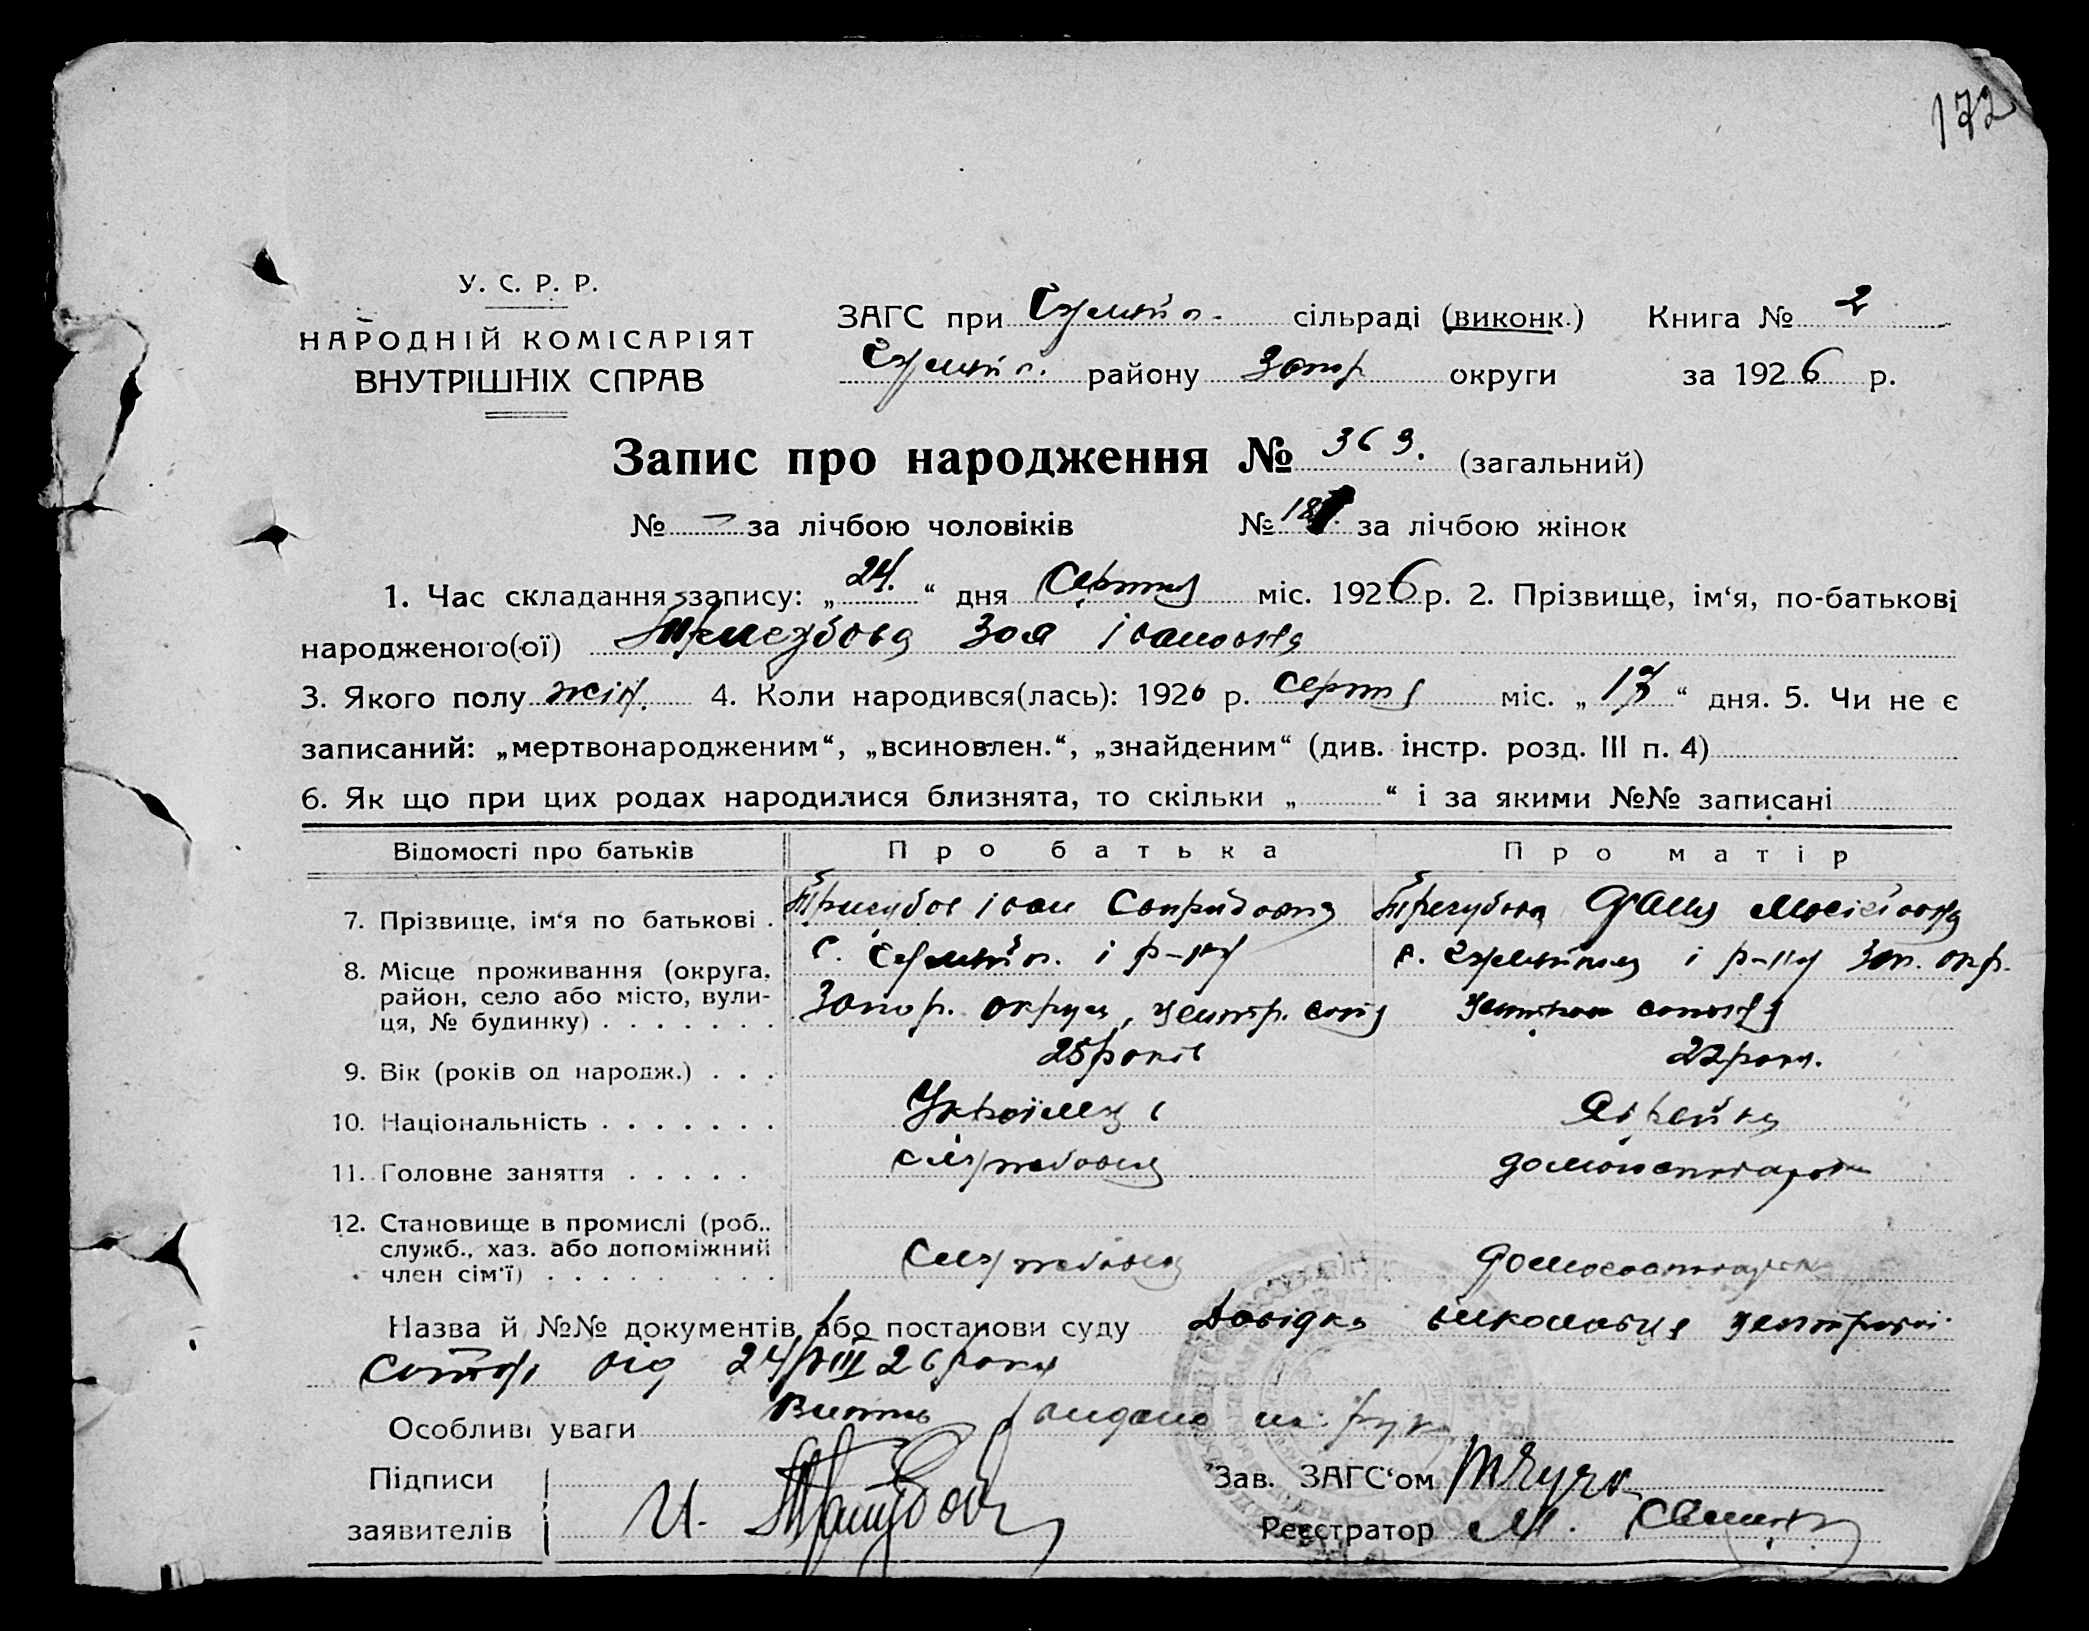 172
У. С. Р. Р.
НАРОДНІЙ КОМІСАРІЯТ
ВНУТРІШНІХ СПРАВ
ЗАГС при сільраді (виконк.) Книга № 2
району Запор округи за 1926 р.
Запис про народження № 369. (загальний)
№ – за лічбою чоловіків № за лічбою жінок
1. Час складання запису: „24.“ дня Серпня міс. 1926 р. 2. Прізвище, ім‘я, по-батькові
народженого(ої) Зоя Івановна
3. Якого полу жін. 4. Коли народився(лась): 1926 р. серпня міс. „17“ дня. 5. Чи не є
записаний: „мертвонародженим“, „всиновлен.“, „знайденим“ (див. інстр. розд. III п. 4)
6. Як що при цих родах народилися близнята, то скільки „ “ і за якими №№ записані
Відомості про батьків Про батька Про матір
7. Прізвище, ім‘я по батькові . Тригубов Іван Спиридонов Тригубова
8. Місце проживання (округа, с. і р-ну с. і р-ну Зап. окр.
район, село або місто, вули-
ця, № будинку) . . . . . . . Запор. округи, центр. сотня сотня
9. Вік (років од народж.) . . . 25 років 22 роки.
10. Національність . . . . . . . Українець Яврейка
11. Головне заняття . . . . . службовець домогосподарка
12. Становище в промислі (роб.,
служб., хаз. або допоміжний
член сім‘ї) . . . . . . . . . Службовець домогосподарка
Назва й №№ документів або постанови суду Довідка виконавця центральної
сотні від 24/VIII 26 року
Особливі уваги Витяг видано на руки
Підписи Зав. ЗАГС‘ом
заявителів И. Тригубов Реєстратор М.